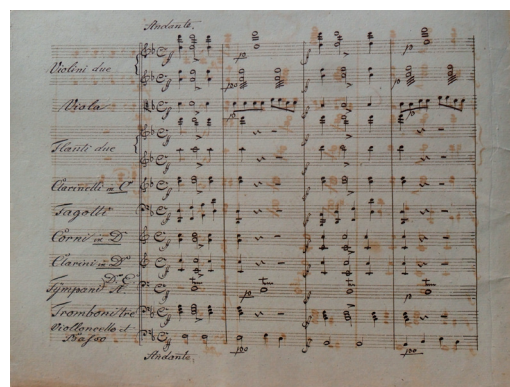 Andante.
Violini due
Viola
Flauti due
Clarinetti in C
Fagotti
Corni in D
Clarini in D
Tympani D. A.
Tromboni tre
Violloncello et
Basso
Andante.